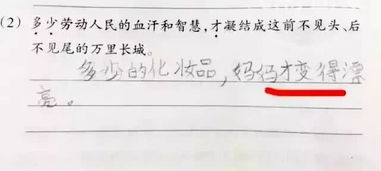 (2) 多少劳动人民的血汗和智慧,才凝结成这前不见头、后
不见尾的万里长城。
多少的化妆品,妈妈才变得漂
亮。